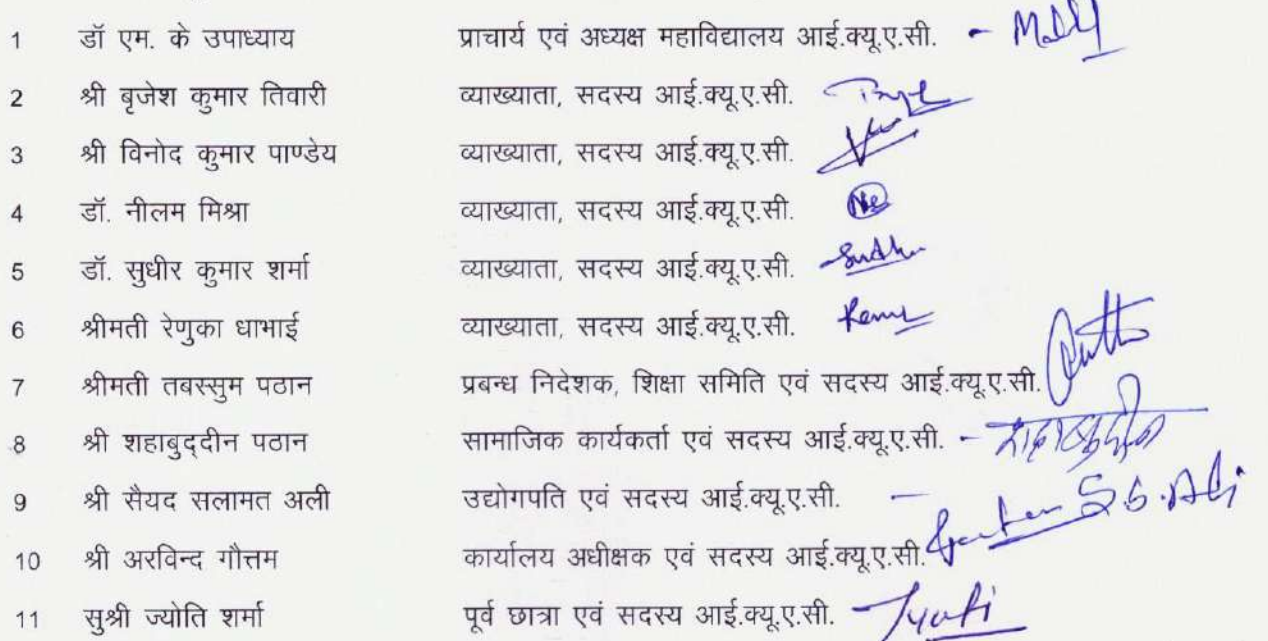 1 डॉ एम. के उपाध्याय प्राचार्य एवं अध्यक्ष महाविद्यालय आई.क्यू.ए.सी. -
2 श्री बृजेश कुमार तिवारी व्याख्याता, सदस्य आई.क्यू.ए.सी.
3 श्री विनोद कुमार पाण्डेय व्याख्याता, सदस्य आई.क्यू.ए.सी.
4 डॉ. नीलम मिश्रा व्याख्याता, सदस्य आई.क्यू.ए.सी. Ne
5 डॉ. सुधीर कुमार शर्मा व्याख्याता, सदस्य आई.क्यू.ए.सी.
6 श्रीमती रेणुका धाभाई व्याख्याता, सदस्य आई.क्यू.ए.सी.
7 श्रीमती तबस्सुम पठान प्रबन्ध निदेशक, शिक्षा समिति एवं सदस्य आई.क्यू.ए.सी.
8 श्री शहाबुद्दीन पठान सामाजिक कार्यकर्ता एवं सदस्य आई.क्यू.ए.सी. -
9 श्री सैयद सलामत अली उद्योगपति एवं सदस्य आई.क्यू.ए.सी. - S.S.Ali
10 श्री अरविन्द गौत्तम कार्यालय अधीक्षक एवं सदस्य आई.क्यू.ए.सी.
11 सुश्री ज्योति शर्मा पूर्व छात्रा एवं सदस्य आई.क्यू.ए.सी. - Jyoti